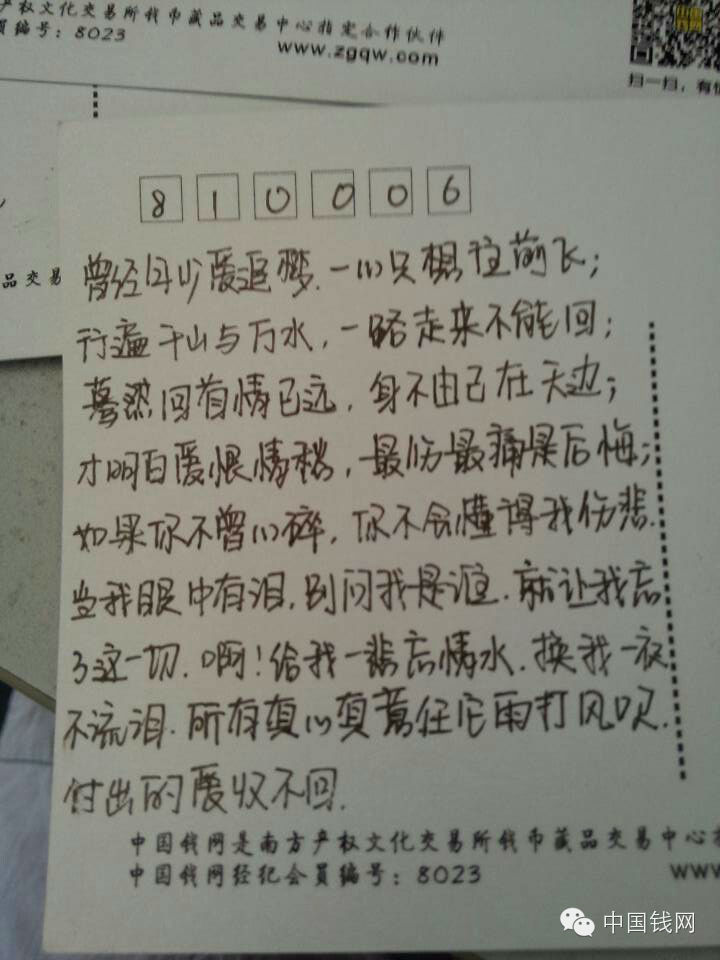 产权文化交易所钱币藏品交易中心指定合作伙伴
員编号：8023
www.zgqw.com
扫一扫，有惊
品交易
810006
曾经年少爱追梦.一心只想往前飞；
行遍千山与万水，一路走来不能回；
蓦然回首情已远，身不由己在天边；
才明白爱恨情愁，最伤最痛是后悔；
如果你不曾心碎，你不会懂得我伤悲.
当我眼中有泪.别问我是谁.就让我忘
了这一切.啊！给我一杯忘情水.换我一夜
不流泪.所有真心真意任它雨打风吹.
付出的爱收不回.
中国钱网是南方产权文化交易所钱币藏品交易中心指
中国钱网经纪会員编号：8023
www
中国钱网